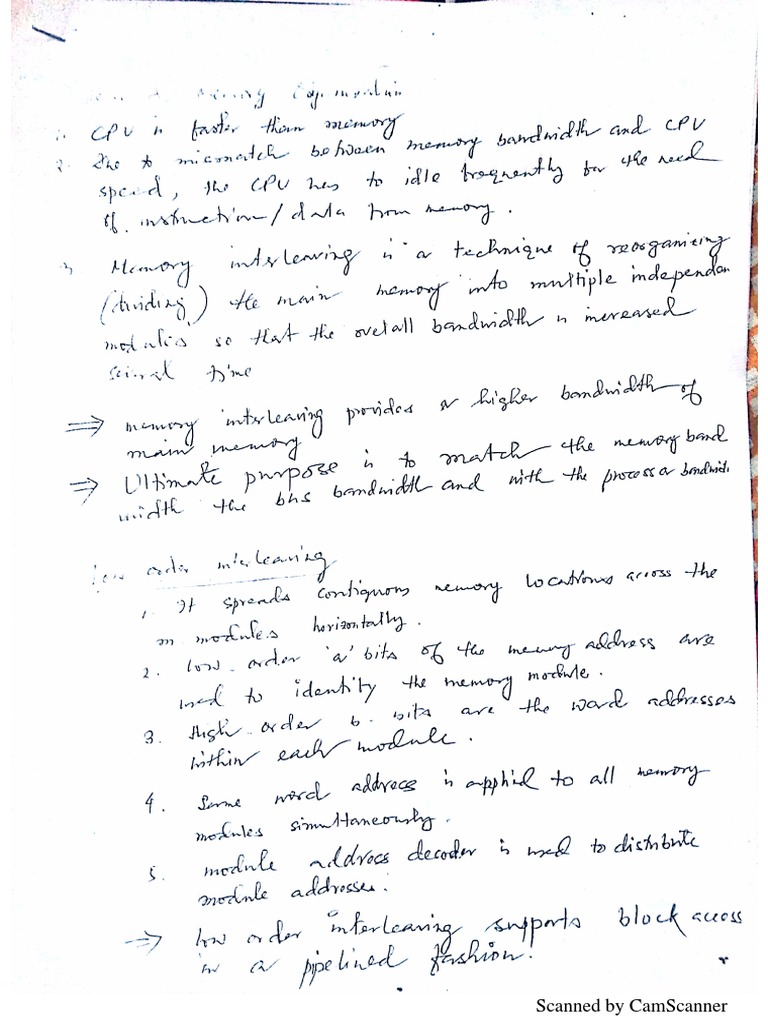 Memory
1. CPU is faster than memory
2. Due to mismatch between memory bandwidth and CPU
speed, the CPU has to idle frequently for the need
of instruction/data from memory.
3 Memory interleaving is a technique of reorganizing
(dividing) the main memory into multiple independen
modules so that the overall bandwidth is increased
time
⇒ memory interleaving provides a higher bandwidth of
main memory
⇒ Ultimate purpose is to match the memory band
width the bus bandwidth and with the processor bandwidt
low order interleaving
1. It spreads contiguous memory locations across the
m modules horizontally.
2. low order 'a' bits of the memory address are
used to identity the memory module.
3. High order b. bits are the word addresses
within each module.
4. Same word address is applied to all memory
modules simultaneously.
5. module address decoder is used to distribute
module addresses.
⇒ low order interleaving supports block access
in a pipelined fashion.
Scanned by CamScanner